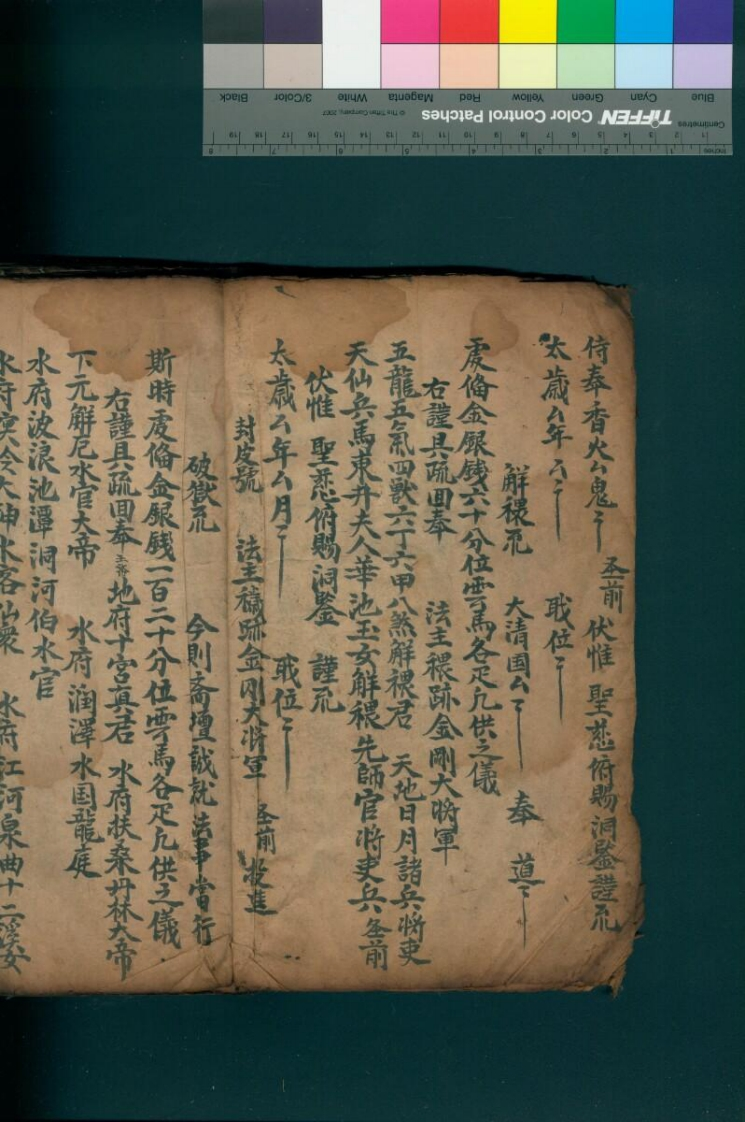 侍奉香火厶鬼 圣前 伏惟 聖慈俯賜洞鑒謹疏
太歲厶年厶 職位
解穢疏 大清国厶 奉 道
虔俻金銀銭六十分位雲馬各疋凡供之儀
右謹具疏回奉 法主穢跡金剛大將軍
五龍五氣四獸六丁六甲八煞解穢君 天地日月諸兵將吏
天仙兵馬東井夫人華池玉女解穢先師官將吏兵圣前
伏惟 聖慈俯賜洞鑒 謹疏
太歲厶年厶月 職位
封皮號 法主穢跡金刚大將軍 圣前 投進
破獄疏 今則斋壇誠就法事當行
斯時虔俻金銀錢一百二十分位雲馬各疋凡供之儀
右謹具疏回奉 地府十宮真君 水府扶桑丹林大帝
下元解厄水官大帝 水府润澤水国龍庭
水府波浪池潭洞河伯水官
水府溟泠大神水客仙衆 水府江河泉曲十二溪女
Black
3/Color
White
Magenta
Red
Yellow
Green
Cyan
Blue
TIFFEN Color Control Patches
© The Tiffen Company, 2007
Centimetres
Inches